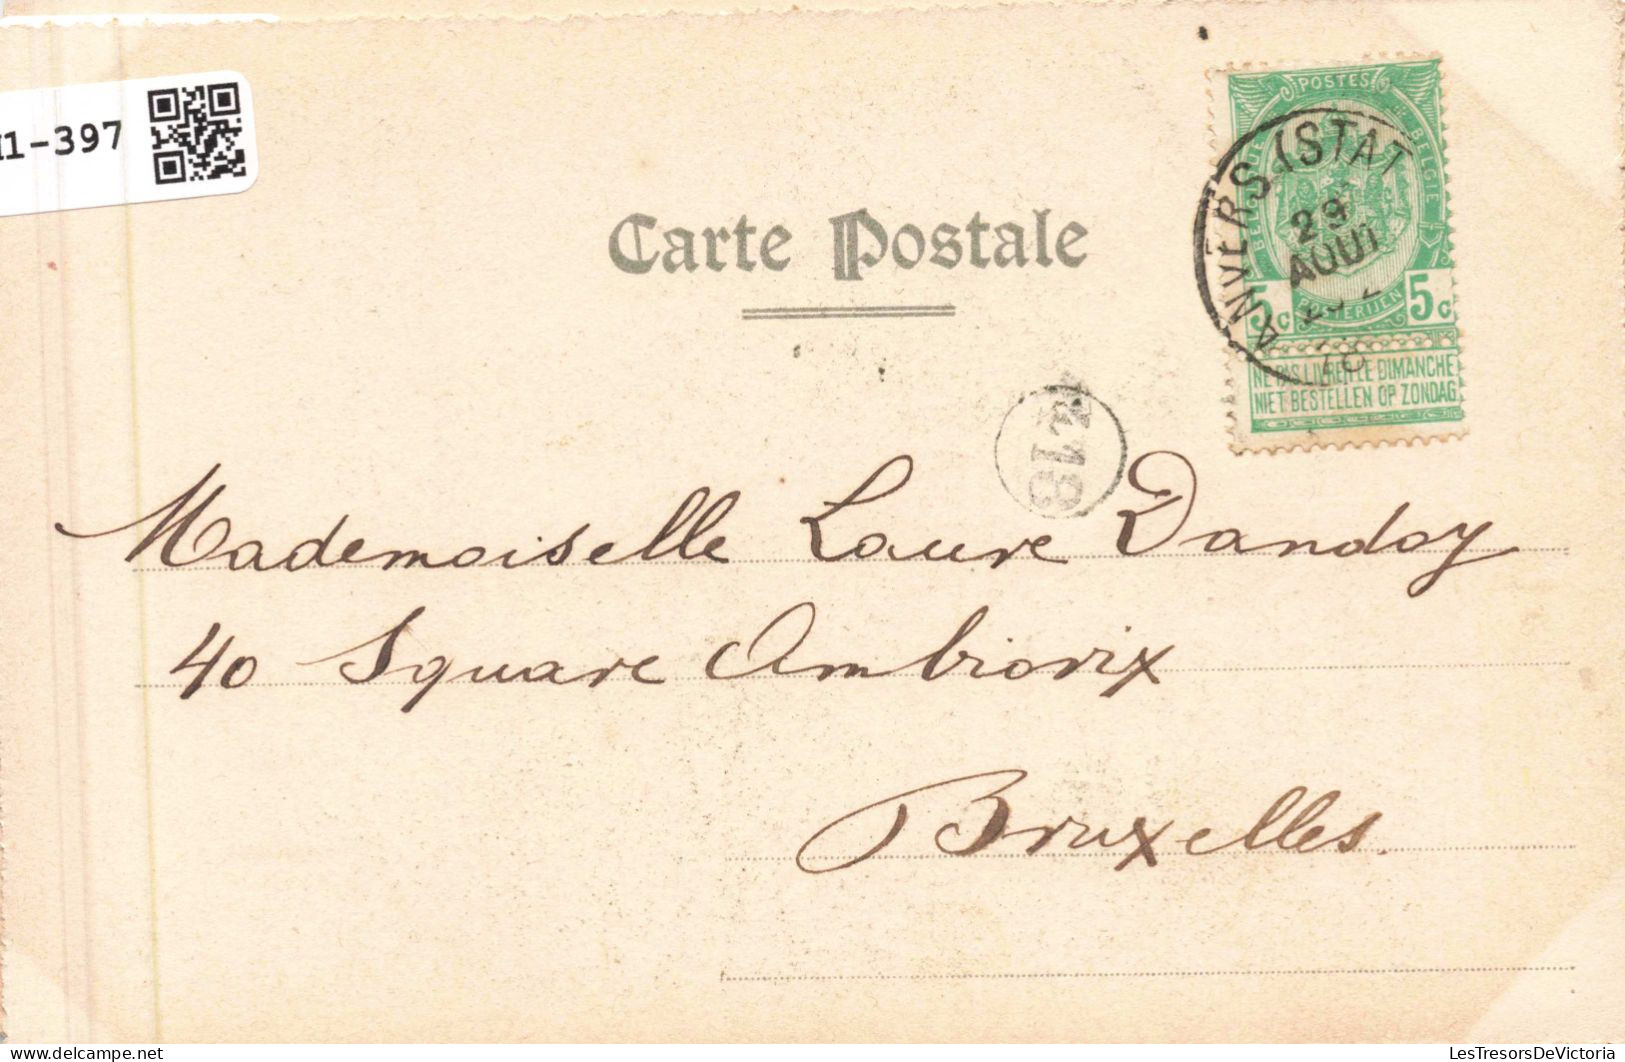 1-397
Carte Postale
POSTES
BELGIQUE
BELGIE
POSTERIJEN
5c 5c
NE PAS LIVRER LE DIMANCHE
NIET BESTELLEN OP ZONDAG
ANVERS (STAT
29
AOUT
18
Mademoiselle Laure Dandoy
40 Square Ambiorix
Bruxelles.
LesTresorsDeVictoria